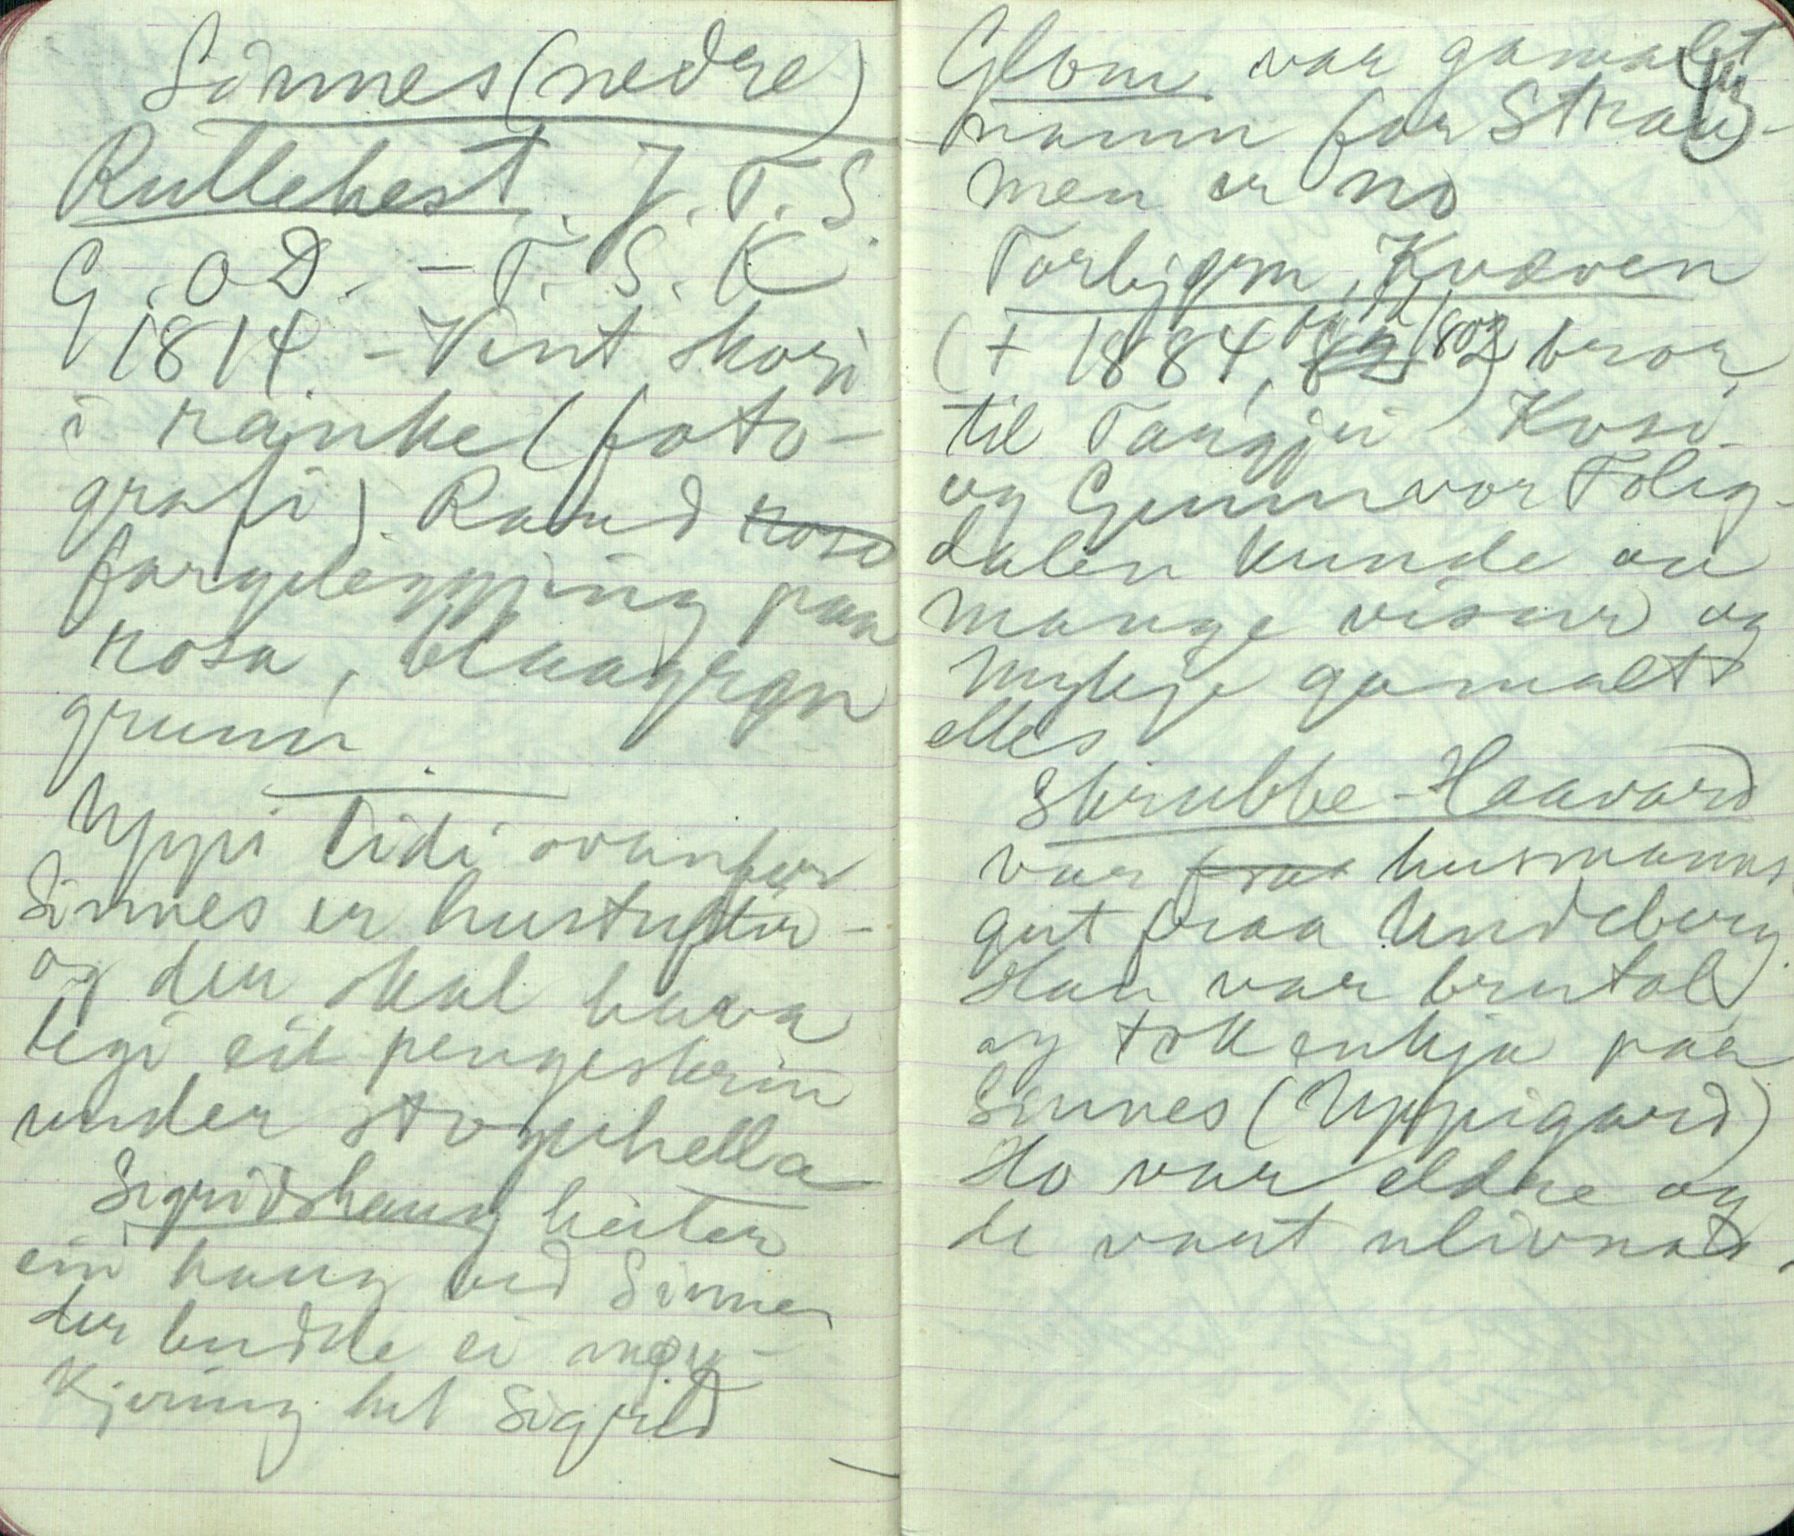 Sinnes (nedre)
Rullehest. J. T. S.
G. O D. - T. S. K
1814 - Vent skori
i ränke (foto-
grafi). Raud roso
fargelegging paa
rosa, blaagrøn
grunn
Uppi Lidi ovanfor
Sinnes er hustufter -
og der skal hava
legi eit pengeskrin
under stoguhella
Sigridshaug heiter
ein haug ved Sinnes
der budde ei møy-
kjering het Sigrid
43
Glom var gamalt
namn for Strau-
men er no
Torbjørn, Kvæven
(+ 1884, 82 1802) bror
til Targjei Kvæv.
og Gunnvor Tolig-
dalen kunde au
mange visur og
mykje gamalt
elles
Skrubbe-Haavard
var fraa husmanns
gut fraa Undeberg.
Han var brutal
og tok enkja paa
Sinnes (Uppigard)
Ho var eldre og
de vart ulivnad.